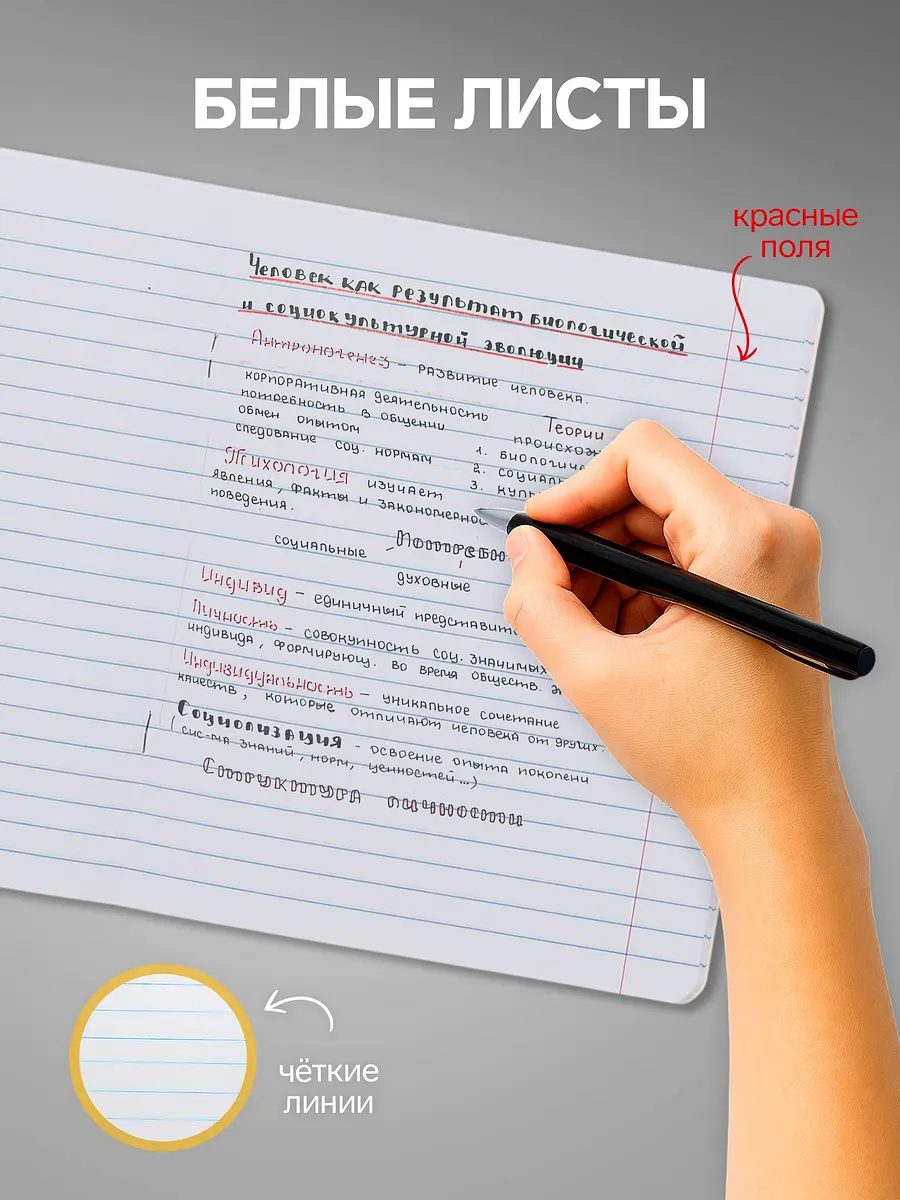 БЕЛЫЕ ЛИСТЫ
красные
поля
Человек как результат биологической
и социокультурной эволюции
Антропогенез – развитие человека.
корпоративная деятельность
потребность в общении
обмен опытом
следование соц. нормам
Теории
происхож
1. биологиче
2. социаль
3. куль
Психология изучает
явления, факты и закономернос
поведения.
Потребн
социальные
духовные
Индивид – единичный представит
Личность – совокупность соц. значимых
индивида, формирующ. во время обществ.
Индивидуальность – уникальное сочетание
качеств, которые отличают человека от других.
Социализация – освоение опыта поколени
(сис-ма знаний, норм, ценностей...)
Структура личности
чёткие
линии